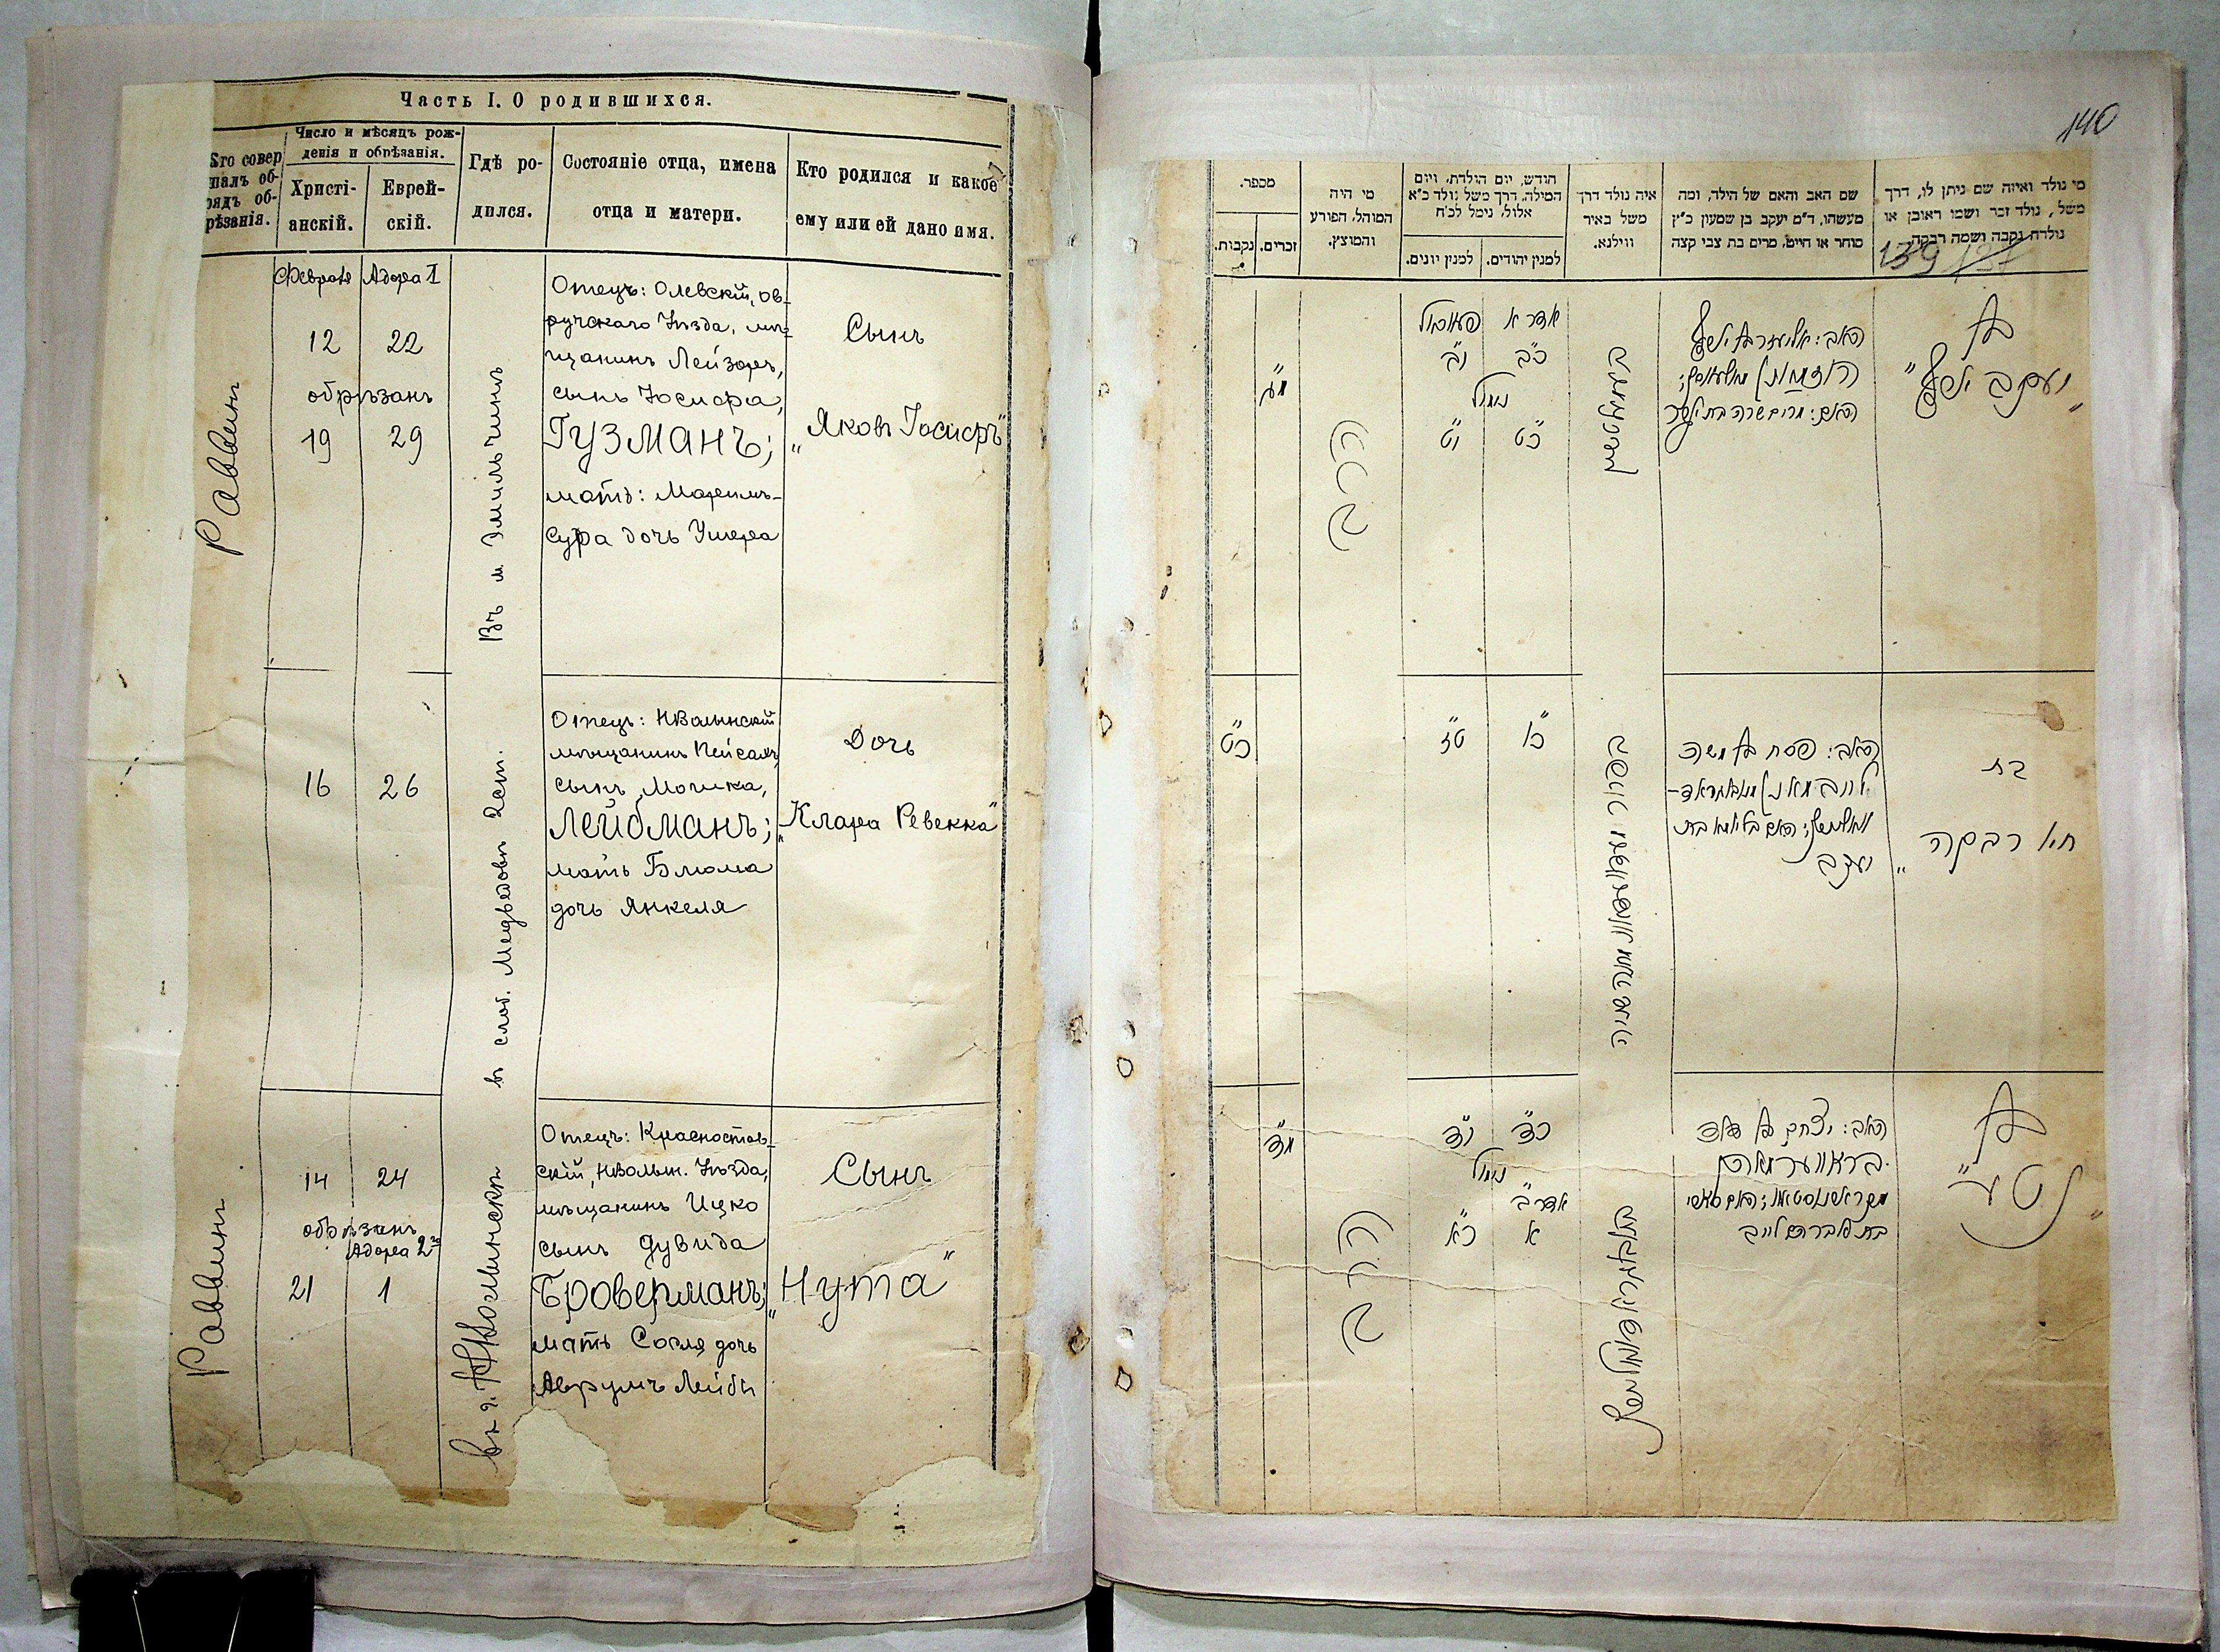 Часть I. О родившихся.
Кто совер
шалъ об-
рядъ об-
рѣзанія.
Число и мѣсяцъ рож-
денія и обрѣзанія.
Христі-
анскій.
Еврей-
скій.
Гдѣ ро-
дился.
Состояніе отца, имена
отца и матери.
Кто родился и какое
ему или ей дано имя.
Раввинъ
Февраля
Адора I
12 22
обрѣзанъ
19 29
Въ м Эмильчинѣ
Отецъ: Олевскій, ов-
ручскаго Уѣзда, мѣ-
щанинъ Лейзоръ,
сынъ Іосифа,
Гузманъ;
мать: Маримъ-
Сура дочь Ушера
Сынъ
„Яковъ Іосифъ“
16 26
въ слоб. Медвѣдовѣ 2ст.
Отецъ: НВолынскій
мѣщанинъ Пейсахъ,
сынъ Мошка,
Лейбманъ;
мать Блюма
дочь Янкеля
Дочь
„Клара Ревекка“
Раввинъ
14 24
обрѣзанъ
Адора 2го
21 1
въ г. НВолынскѣ
Отецъ: Красностав-
скій, НВолын. Уѣзда,
мѣщанинъ Ицко
сынъ Дувида
Броверманъ;
мать Сося дочь
Аврумъ Лейбы
Сынъ
„Нута“
140
מי נולד ואיזה שם ניתן לו, דרך
משל, נולד זכר ושמו ראובן או
נולדה נקבה ושמה רבקה.
139
שם האב והאם של הילד, ומה
מעשהו, ד"מ יעקב בן שמעון כ"ץ
סוחר או חייט, מרים בת צבי קצה
איה נולד דרך
משל באיר
ווילנא.
חודש, יום הולדת, ויום
המילה, דרך משל נולד כ"א
אלול, נימל לכ"ח
למנין יהודים.
למנין יונים.
מי היה
המוהל, הפורע
והמוצץ.
מספר.
זכרים.
נקבות.
בן
„יעקב יוסף“
האב: אליעזר בן יוסף
האם: מרים שרה בת אשר
אדר א
כ"ב י"ב
נימול
כ"ט י"ט
הרב
בת
„חיי רבקה
האב: פסח בן משה
יעקב
כ"ו ט"ז
כ"ט
בן
„נטע“
האב: יצחק בן דוד
בראווערמאן
בת אברהם לייב
כ"ד י"ד
נימול
אדר ב
א כ"א
הרב